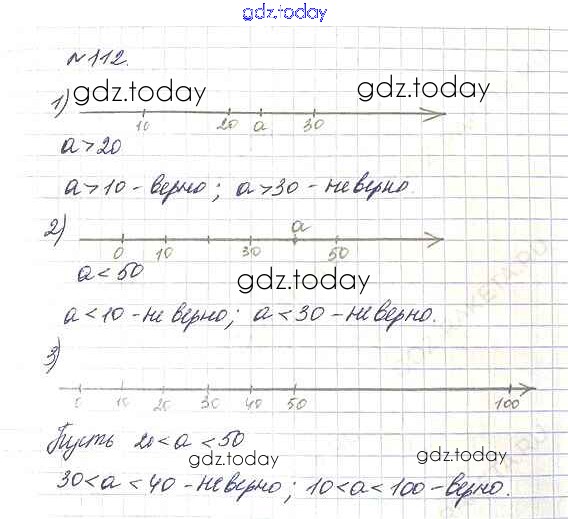 gdz.today
№112.
1) gdz.today gdz.today
10 20 a 30
a > 20
a > 10 - верно; a > 30 - неверно.
2) a
0 10 30 50
a < 50 gdz.today
a < 10 - не верно; a < 30 - неверно.
3)
0 10 20 30 40 50 100
Пусть 20 < a < 50
gdz.today gdz.today
30 < a < 40 - неверно; 10 < a < 100 - верно.